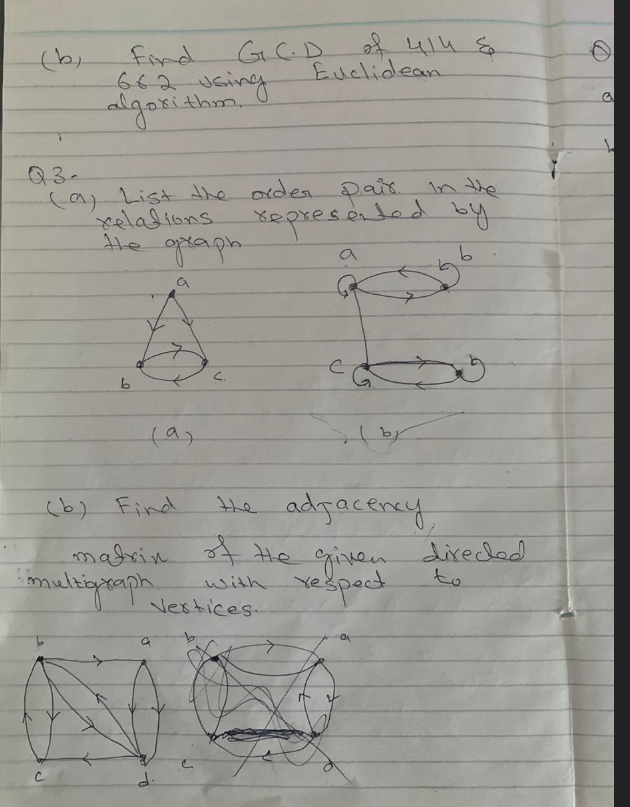 (b) Find G.C.D of 414 &
662 using Euclidean
algorithm.
Q3-
(a) List the order pair in the
relations represented by
the graph
a
b c
a b
c
(a) (b)
(b) Find the adjacency
matrix of the given directed
multigraph with respect to
vertices.
b a b a
c d c d